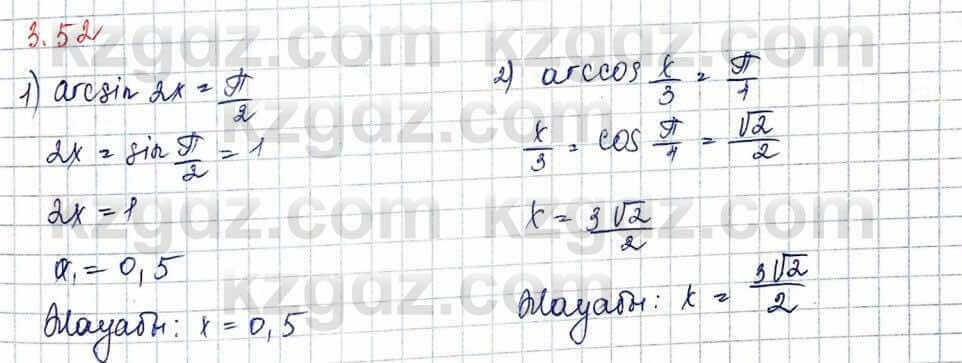 3.52
1) arcsin 2x = π/2
2x = sin π/2 = 1
2x = 1
x₁ = 0,5
Жауабы: x = 0,5
2) arccos x/3 = π/4
x/3 = cos π/4 = √2/2
x = 3√2/2
Жауабы: x = 3√2/2
kzgdz.com kzgdz.com
kzgdz.com kzgdz.com
kzgdz.com kzgdz.com
kzgdz.com kzgdz.com